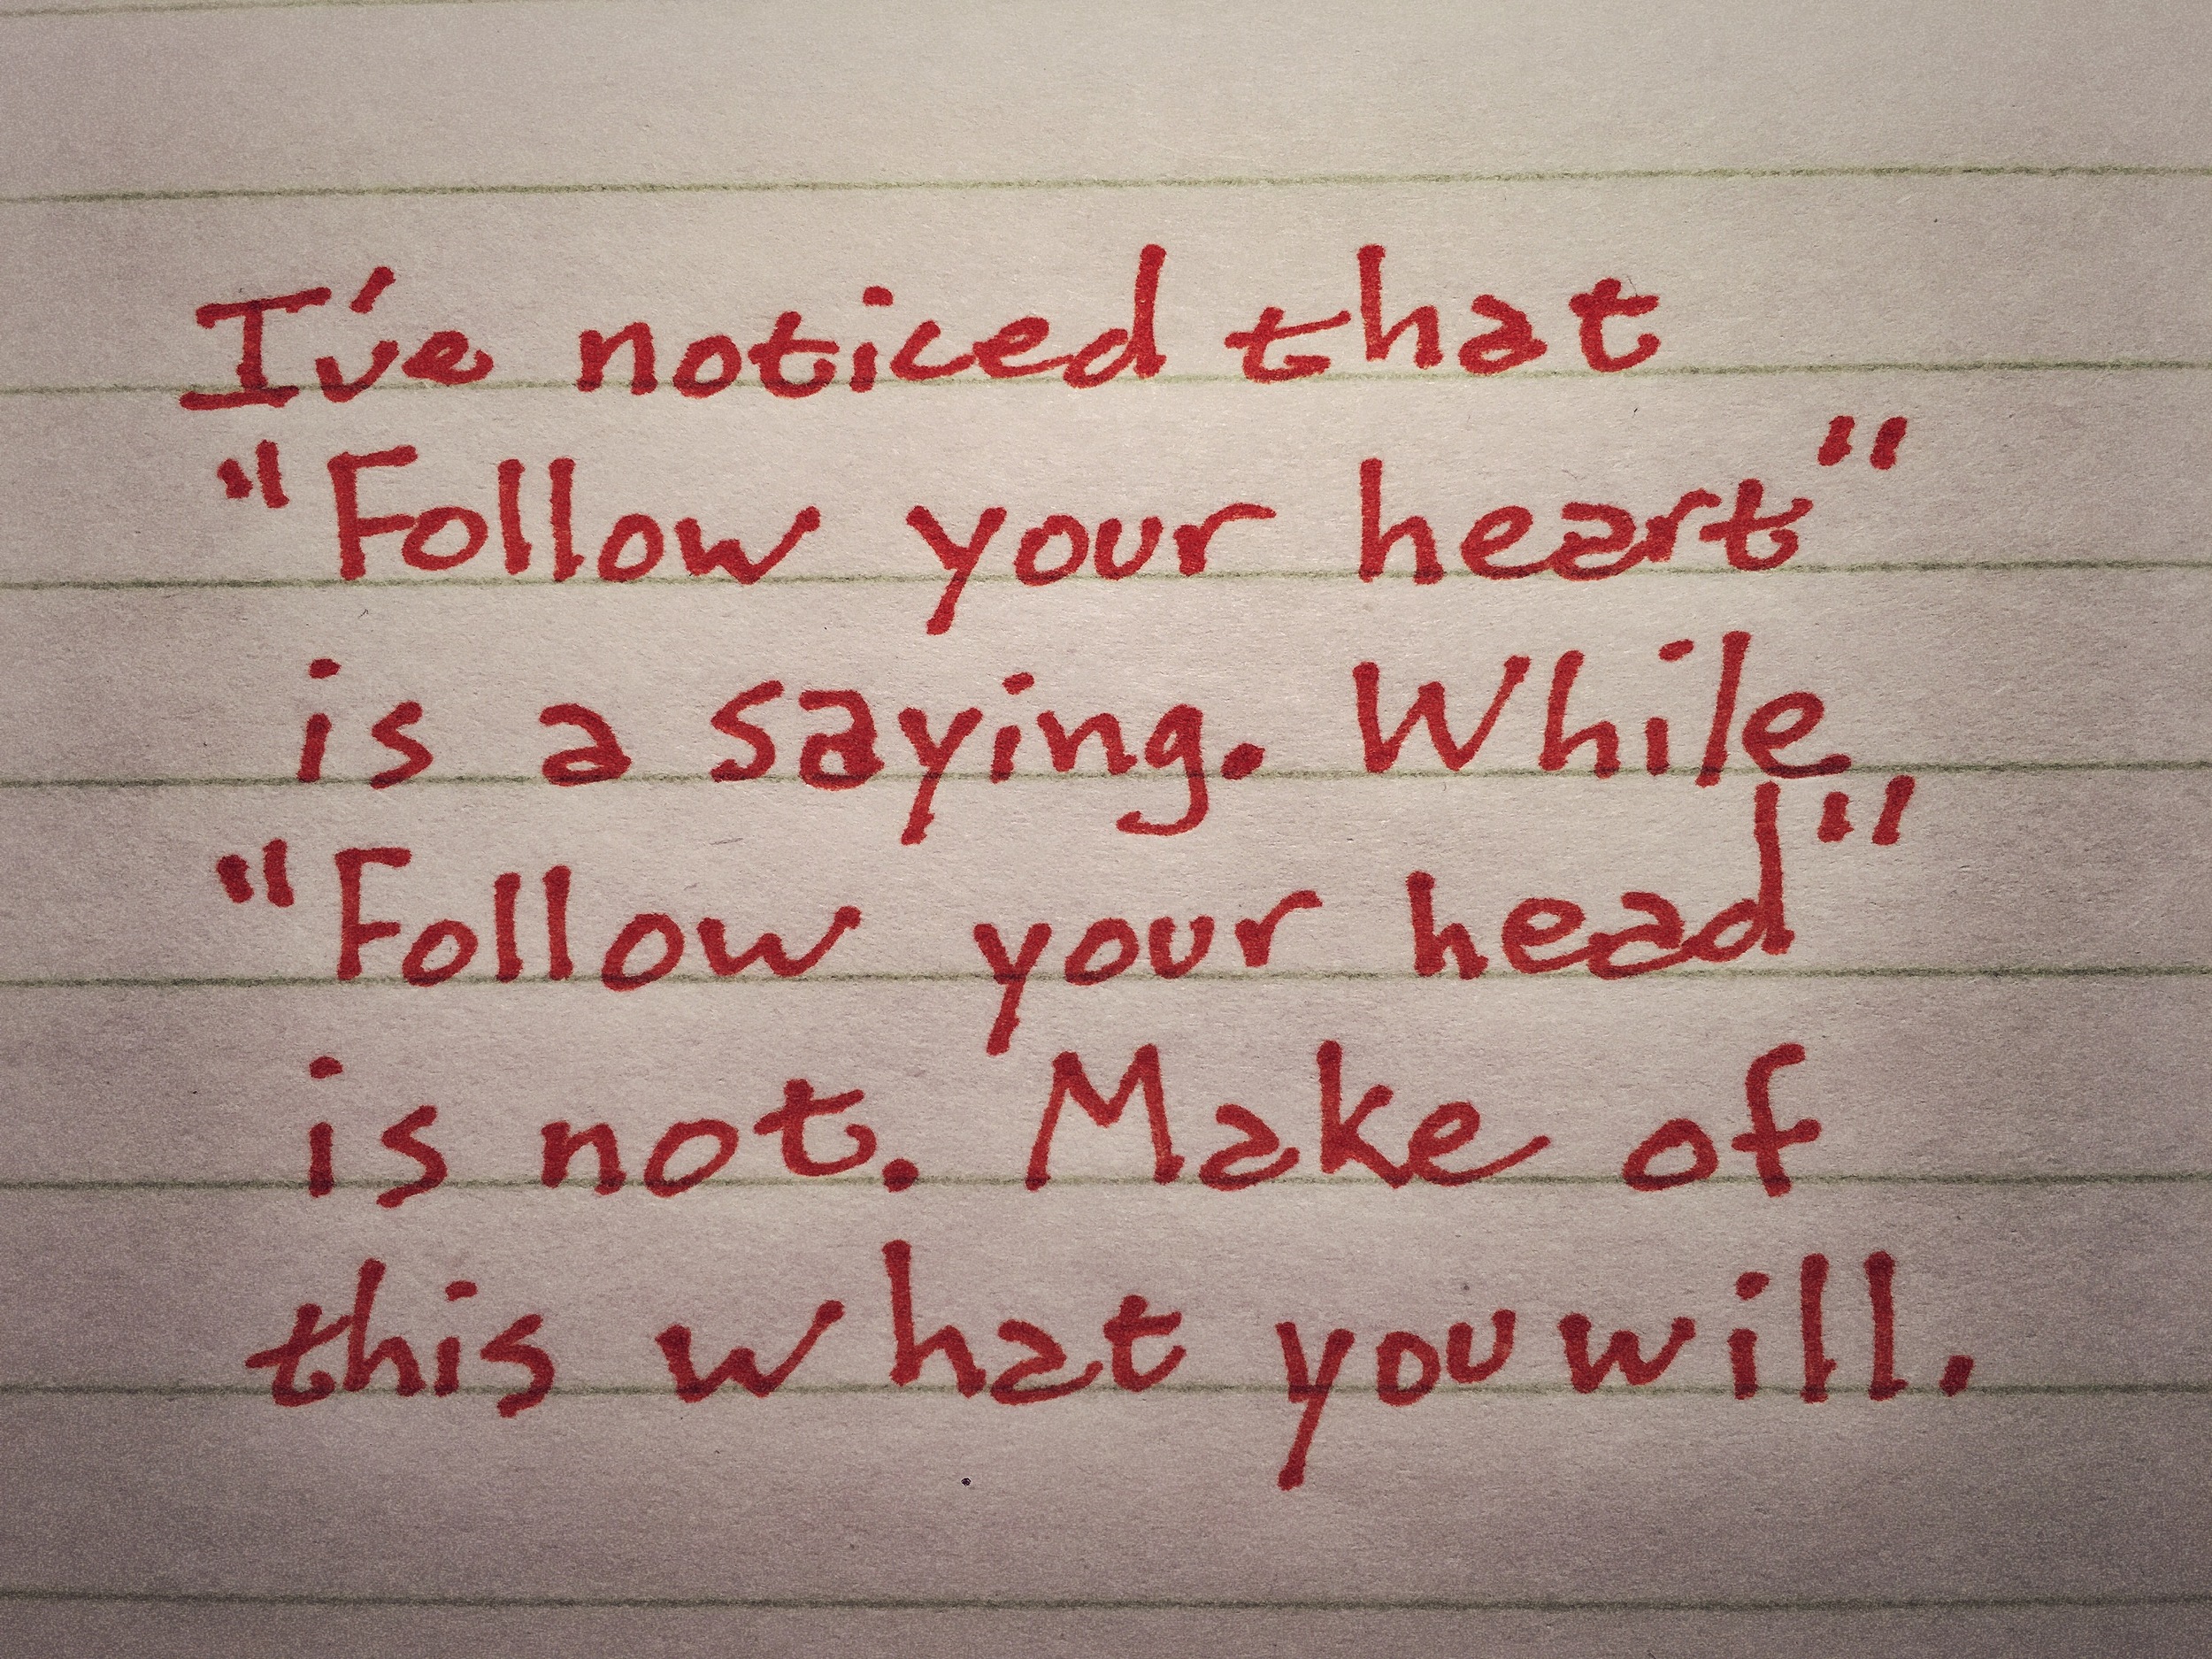 I've noticed that
"Follow your heart"
is a saying. While,
"Follow your head"
is not. Make of
this what you will.